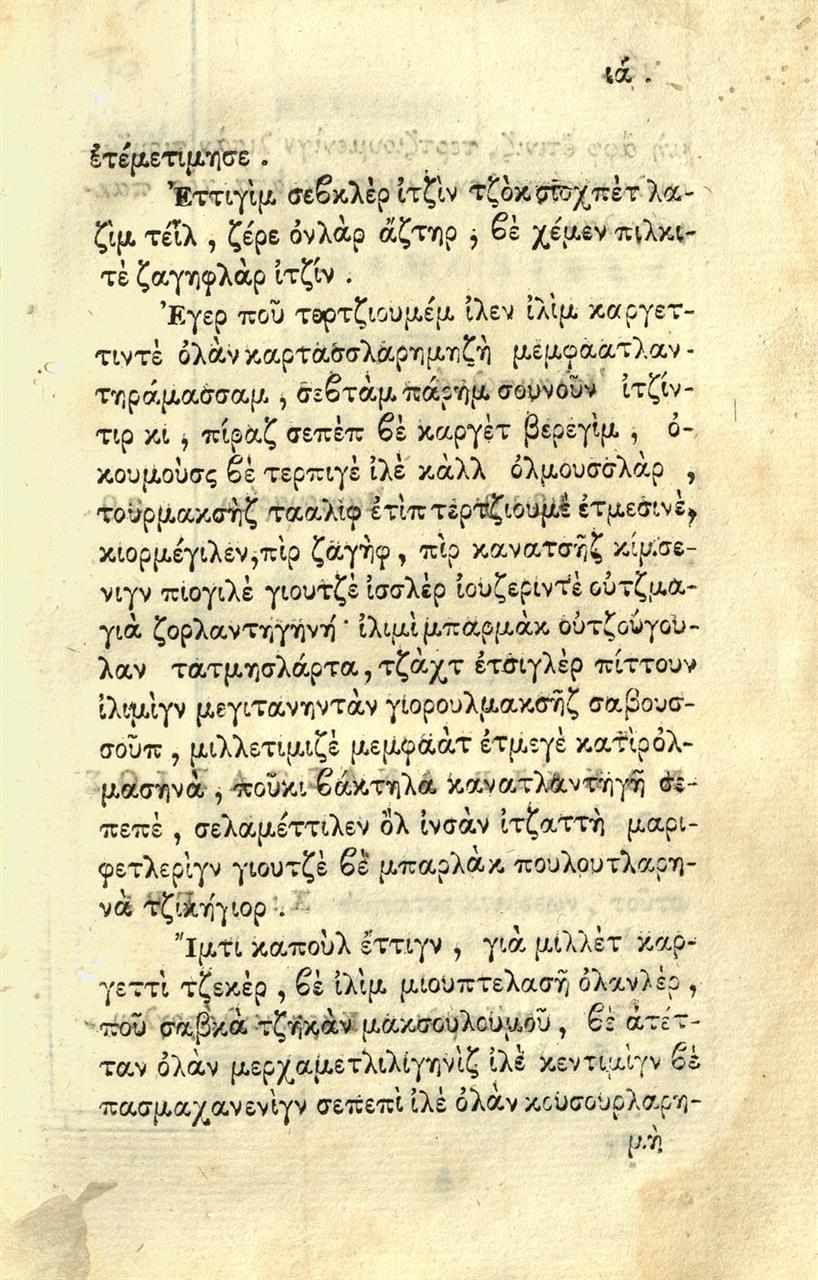 ιά .
ἐτέμετιμησε .
Ἐττιγὶμ σεϐκλὲρ ἰτζὶν τζὸκ σιοχπὲτ λα-
ζὶμ τέῒλ , ζέρε ὀνλὰρ ἄζτηρ ; ϐὲ χέμεν πιλκι-
τὲ ζαγηφλὰρ ἰτζίν .
Ἐγερ ποῦ τερτζιουμέμ ἰλεν ἰλὶμ καργετ-
τιντὲ ὀλὰν καρτασσλάρημηζὴ μεμφαατλαν-
τηράμασσαμ , σεϐτὰμ πάρημ σουνοῦν ἰτζίν-
τιρ κι , πίραζ σεπὲπ ϐὲ καργὲτ βερεγὶμ , ὀ-
κουμοὺσς ϐὲ τερπιγὲ ἰλὲ κὰλλ ὀλμουσσλὰρ ,
τουρμακσὴζ τααλὶφ ἐτὶπ τερτζιουμὲ ἐτμεσινὲ,
κιορμέγιλεν, πὶρ ζαγὴφ , πὶρ κανατσῆζ κίμσε-
νιγν πιογιλὲ γιουτζὲ ἰσσλὲρ ἰουζεριντὲ οὐτζμα-
γιὰ ζορλαντηγηνή · ἰλιμὶ μπαρμὰκ οὐτζούγου-
λαν τατμησλάρτα, τζὰχτ ἐτσιγλὲρ πίττουν
ἰλιμὶγν μεγιτανηντὰν γιορουλμακσῆζ σαβουσ-
σοῦπ , μιλλετιμιζὲ μεμφαὰτ ἐτμεγὲ κατὶρ ὀλ-
μασηνὰ , ποῦκι ϐάκτηλα κανατλαντηγῆ σε-
πεπὲ , σελαμέττιλεν ὂλ ἰνσὰν ἰτζαττὴ μαρι-
φετλερὶγν γιουτζὲ ϐὲ μπαρλὰκ πουλουτλαρη-
νὰ τζικήγιορ .
Ἴμτι καποὺλ ἔττιγν , γιὰ μιλλὲτ καρ-
γεττὶ τζεκὲρ , ϐὲ ἰλὶμ μιουπτελασῆ ὀλανλὲρ ,
ποῦ σαβκὰ τζηκὰν μακσουλουμοῦ , ϐὲ ἀτέτ-
ταν ὀλὰν μερχαμετλιλίγηνὶζ ἰλὲ κεντιμὶγν ϐὲ
πασμαχανενὶγν σεπεπὶ ἰλὲ ὀλὰν κουσουρλαρη-
μὴ